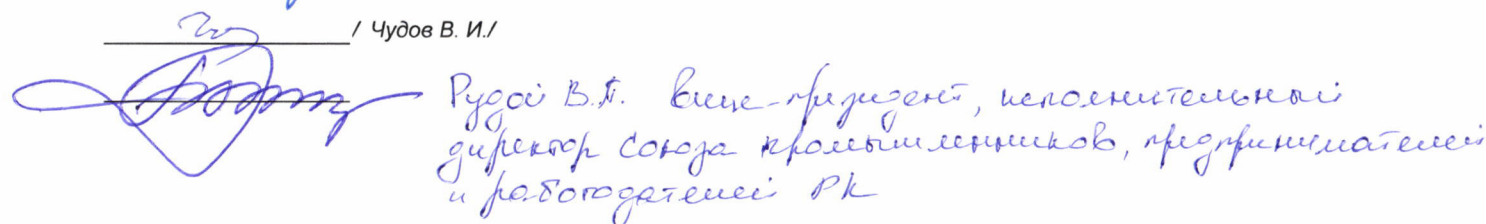 / Чудов В. И./
Рудой В.П. вице-президент, исполнительный
директор Союза промышленников, предпринимателей
и работодателей РК